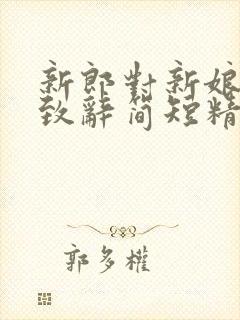 新郎對新娘
致辭簡短精
郭多權